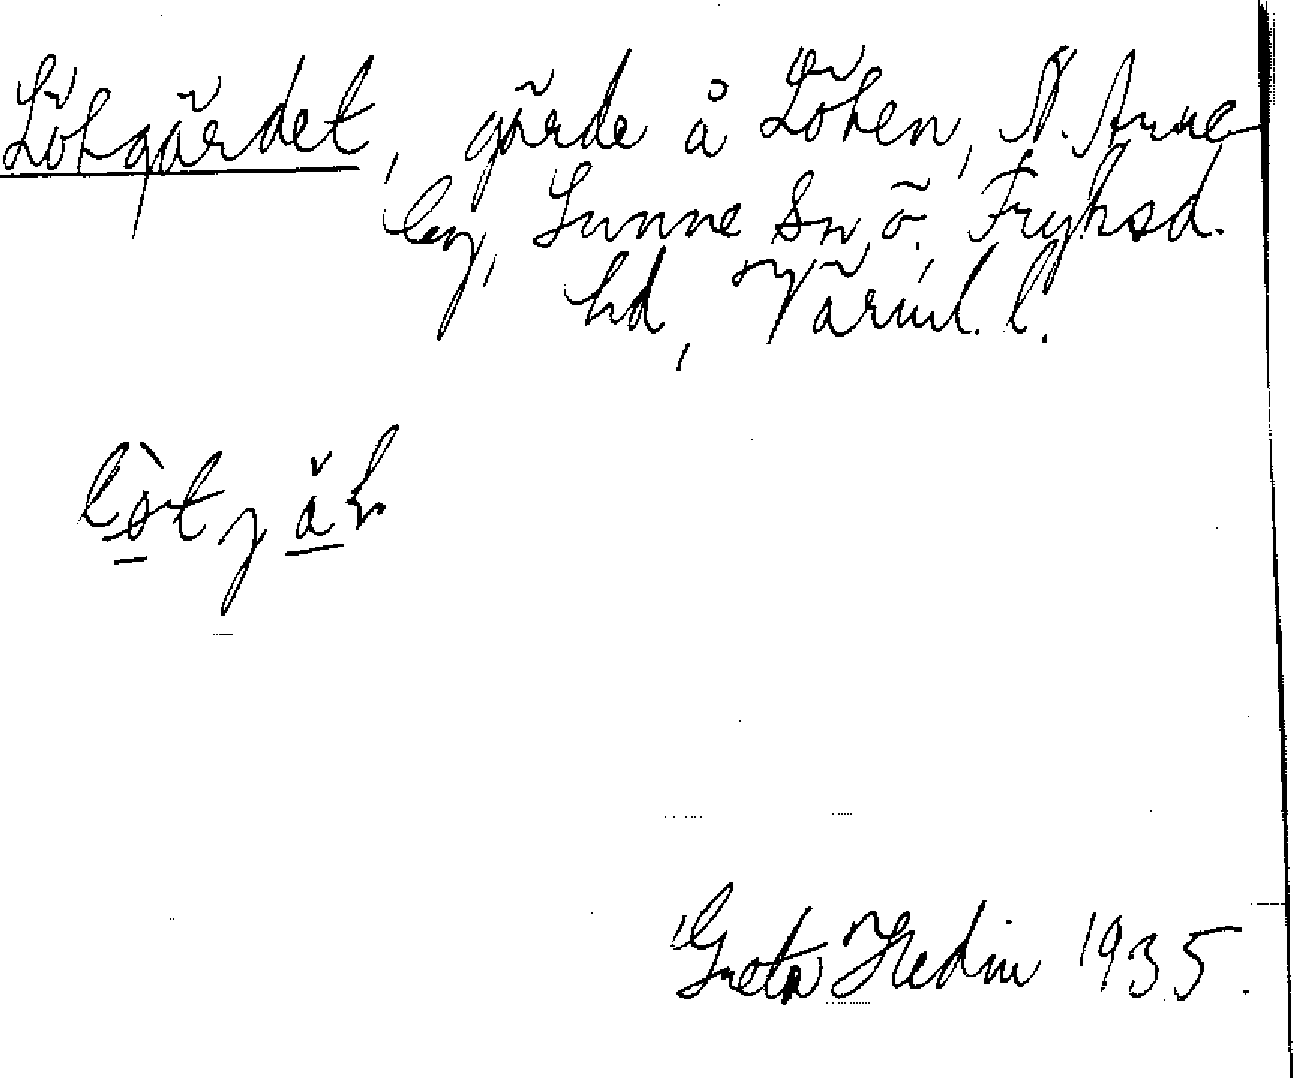 Lökgärdet, gärde å Löken, N. Arne-
by, Sunne sn, ö. Fryksd.
hd, Värml. l.
Greta Hedin 1935.